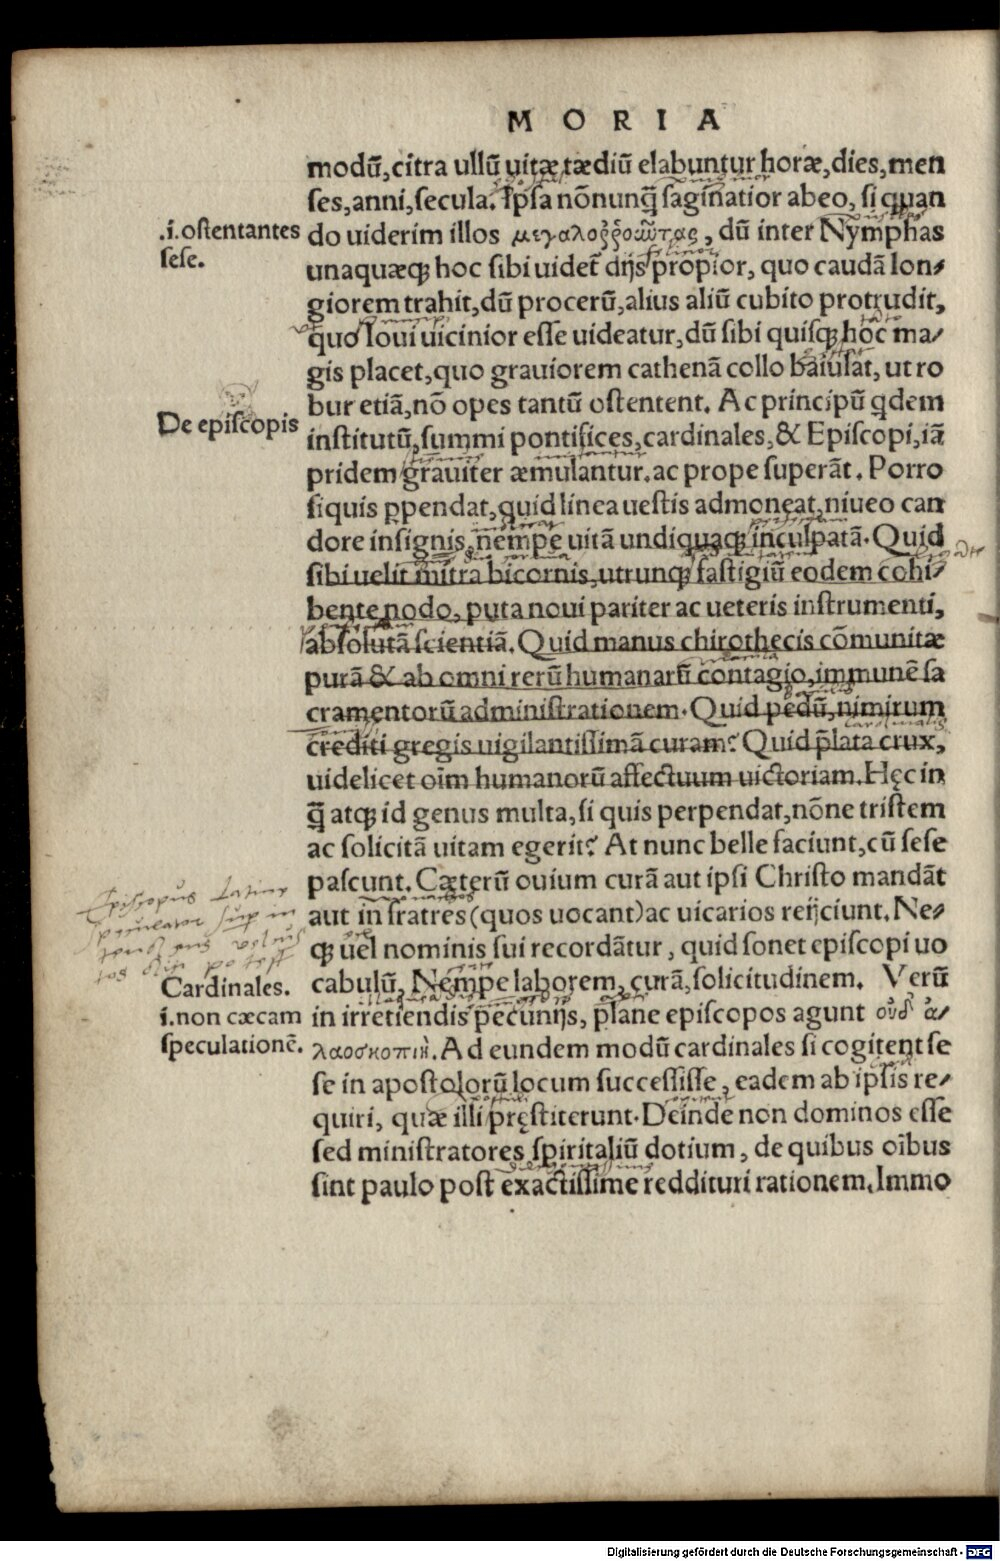 MORIA
modū,citra ullū uitæ tædiū elabuntur horæ,dies,men
ses,anni,secula. Ipsa nōnunq̄ saginatior abeo, si quan
.i.ostentantes
sese.
do uiderim illos μεγαλοῤῥοῶντας, dū inter Nymphas
unaquæq; hoc sibi uidet̄ dijs propior, quo caudā lon/
giorem trahit,dū procerū,alius aliū cubito protrudit,
quo Ioui uicinior esse uideatur,dū sibi quisq; hoc ma/
gis placet,quo grauiorem cathenā collo baiulat, ut ro
bur etiā,nō opes tantū ostentent. Ac principū qdem
De episcopis
institutū,summi pontifices,cardinales,& Episcopi,iā
pridem grauiter æmulantur.ac prope superāt. Porro
siquis ꝑpendat,quid linea uestis admoneat,niueo can
dore insignis,nempe uitā undiquaq; inculpatā. Quid
sibi uelit mitra bicornis,utrunq; fastigiū eodem cohi/
bente nodo, puta noui pariter ac ueteris instrumenti,
absolutā scientiā. Quid manus chirothecis cōmunitæ
purā & ab omni rerū humanarū contagio,immunē sa
cramentorū administrationem. Quid pedū,nimirum
crediti gregis uigilantissimā curam? Quid p̄lata crux,
uidelicet oīm humanorū affectuum uictoriam. Hęc in
q̄ atq; id genus multa,si quis perpendat,nōne tristem
ac solicitā uitam egerit? At nunc belle faciunt,cū sese
pascunt. Cæterū ouium curā aut ipsi Christo mandāt
aut in fratres(quos uocant)ac uicarios reijciunt. Ne/
q; uel nominis sui recordātur, quid sonet episcopi uo
Episcopus Latine
speculator
cabulū, Nempe laborem, curā,solicitudinem. Verū
Cardinales.
i.non cæcam
speculationē.
in irretiendis pecunijs, plane episcopos agunt οὐδ᾽ ἀ/
λαοσκοπιὴ. Ad eundem modū cardinales si cogitent se
se in apostolorū locum successisse, eadem ab ipsis re/
quiri, quæ illi pręstiterunt. Deinde non dominos esse
sed ministratores spiritaliū dotium, de quibus oībus
sint paulo post exactissime reddituri rationem. Immo
Digitalisierung gefördert durch die Deutsche Forschungsgemeinschaft - DFG